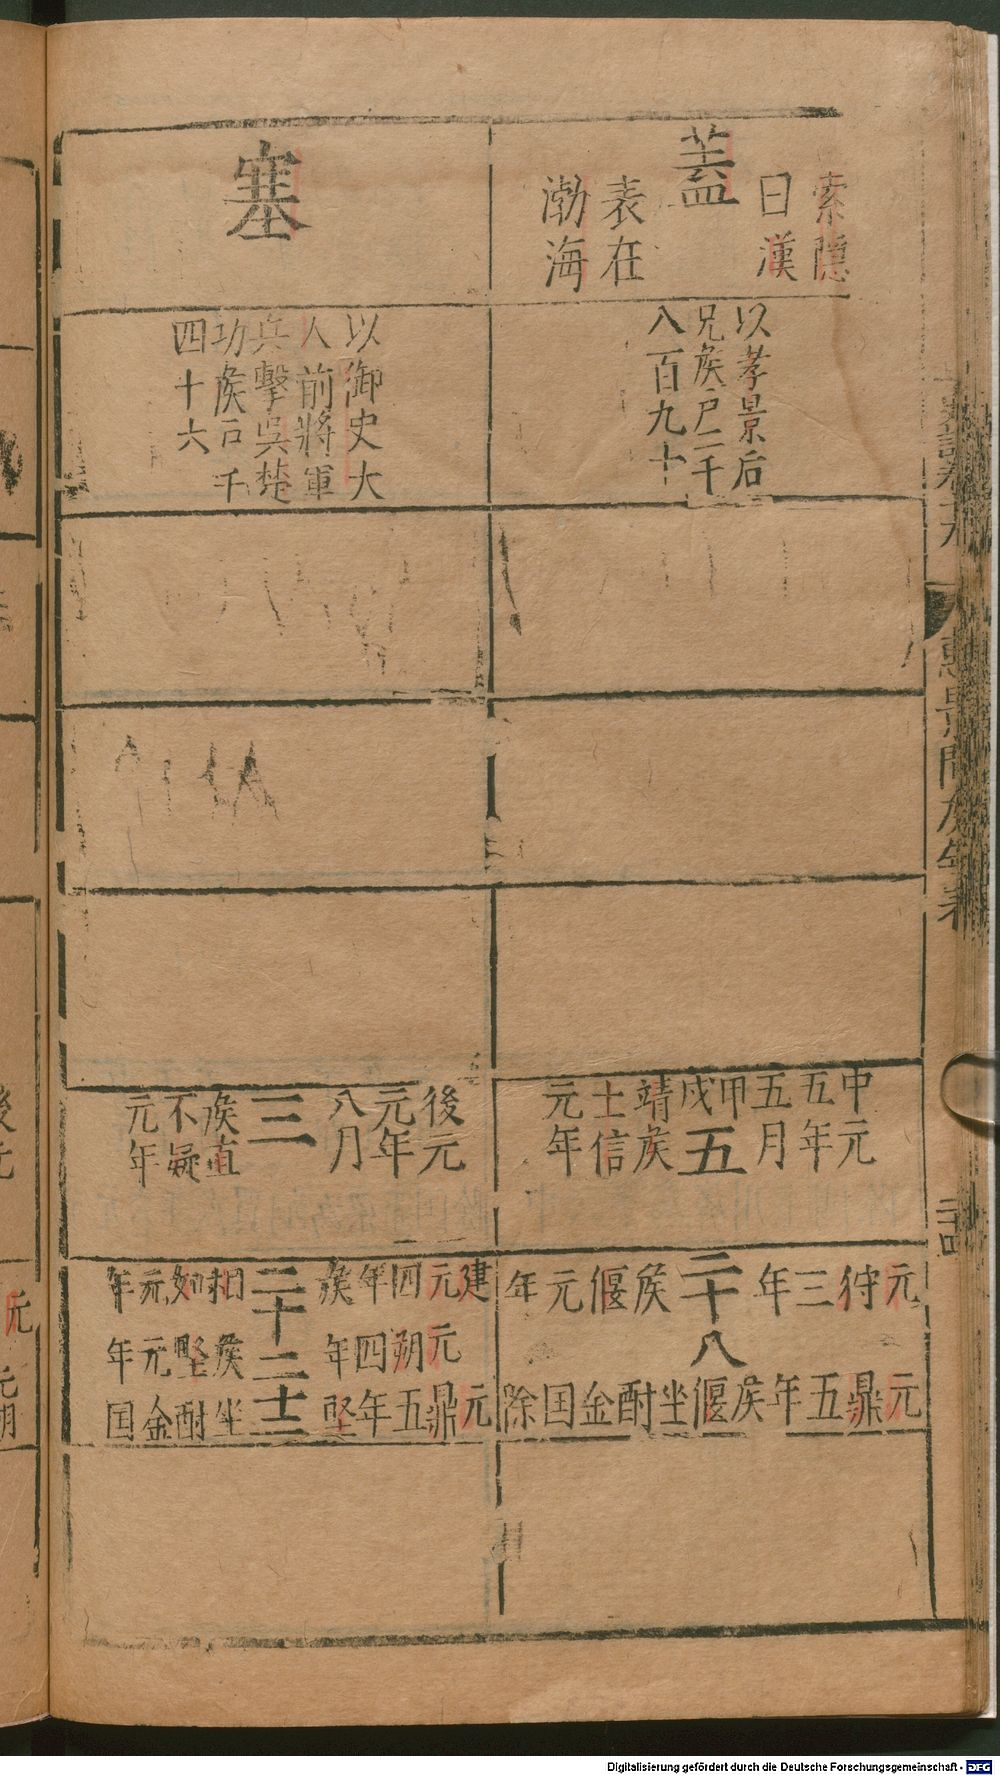 索隱
曰漢
蓋
表在
渤海
以孝景后
兄侯戶二千
八百九十
中元
五年
五月
甲戌
五
靖侯
士信
元年
元狩三年
二十八
侯偃元年
元鼎五年侯偃坐酎金国除
塞
以御史大
人前將軍
兵擊吳楚
功侯戶千
四十六
後元
元年
八月
三
侯直
不疑
元年
建元四年
侯
元朔四年
元鼎五年堅
二十二
十三
相如元年
侯堅元年
坐酎金国
惠景間侯年表
二十四
Digitalisierung gefördert durch die Deutsche Forschungsgemeinschaft - DFG